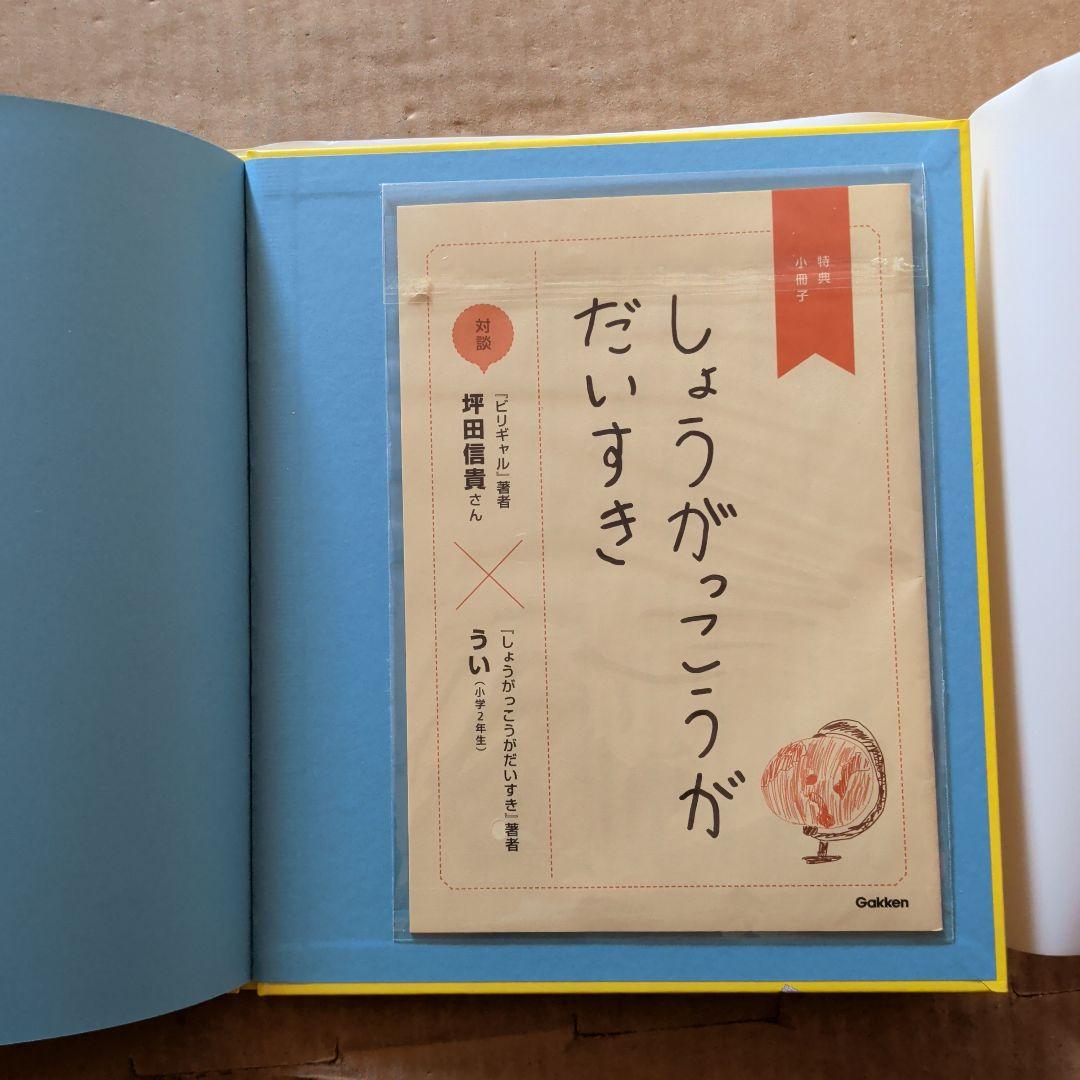 特典
小冊子
しょうがっこうが
だいすき
対談
『ビリギャル』著者
坪田信貴さん
×
『しょうがっこうがだいすき』著者
うい（小学2年生）
Gakken